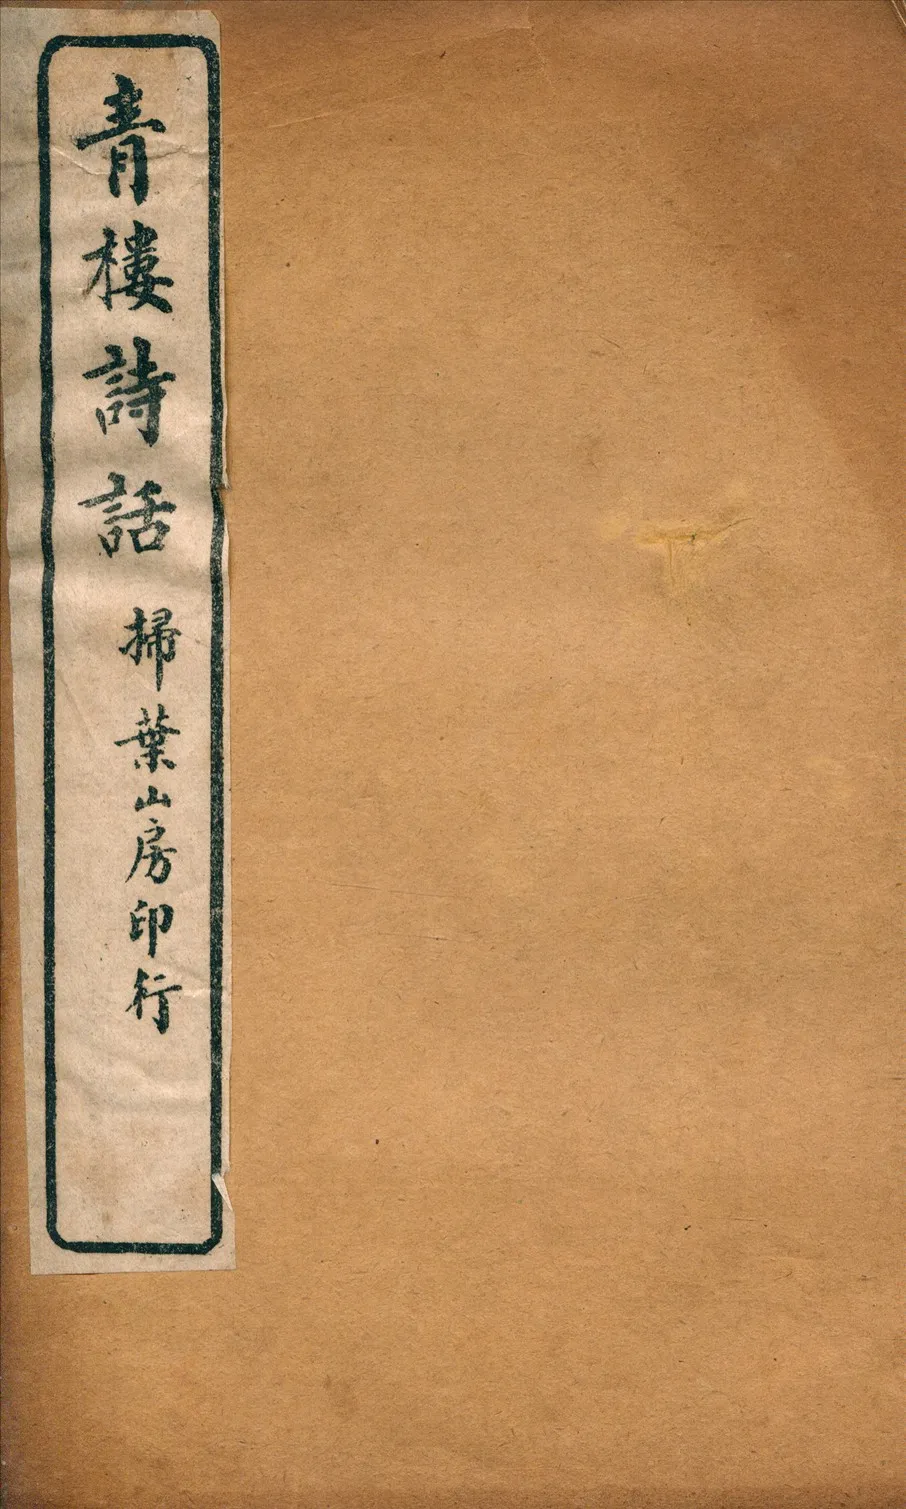 青樓詩話
掃葉山房印行